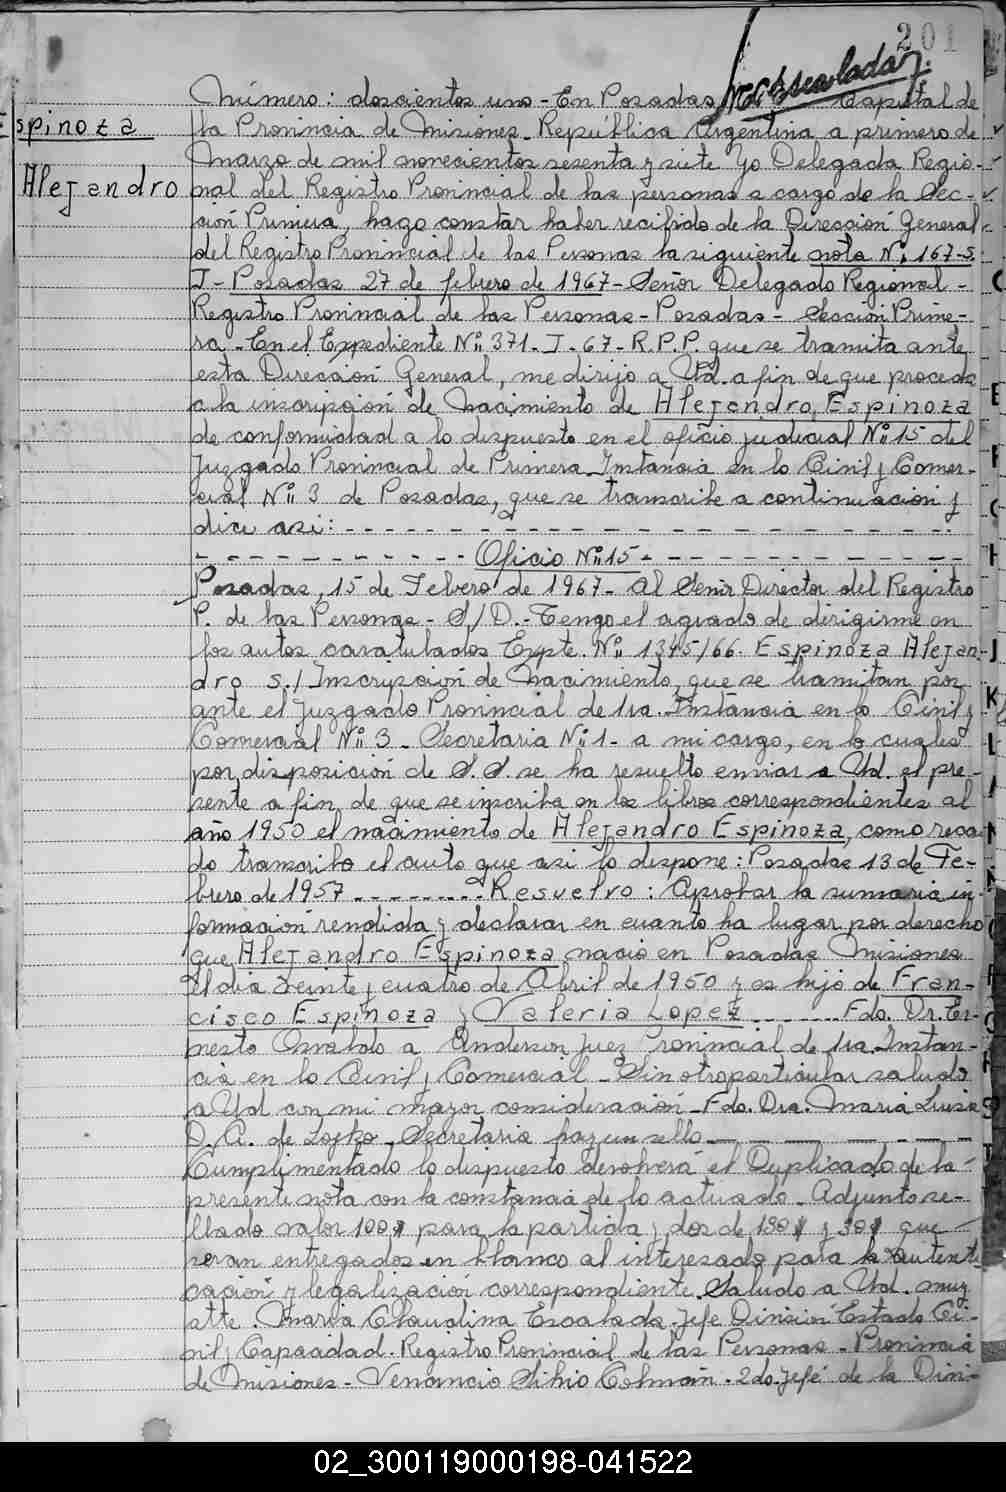 201
M. C. Escalada
Número: doscientos uno - En Posadas Capital de
Espinoza
la Provincia de Misiones República Argentina a primero de
Marzo de mil novecientos sesenta y siete yo Delegada Regio-
Alejandro
nal del Registro Provincial de las personas a cargo de la Sec-
ción Primera, hago constar haber recibido de la Dirección General
del Registro Provincial de las Personas la siguiente nota Nº 167-S.
I - Posadas 27 de febrero de 1967 - Señor Delegado Regional -
Registro Provincial de las Personas - Posadas - Sección Prime-
ra - En el Expediente Nº 371 - I - 67 - R.P.P. que se tramita ante
esta Dirección General, me dirijo a Ud. a fin de que proceda
a la inscripción de Nacimiento de Alejandro Espinoza
de conformidad a lo dispuesto en el oficio judicial Nº 15 del
Juzgado Provincial de Primera Instancia en lo Civil y Comer-
cial Nº 3 de Posadas, que se transcribe a continuación y
dice asi: - - - - - - - - - -
- - - - - - - - Oficio Nº 15 - - - - - - - - -
Posadas, 15 de Febrero de 1967 - Al Señor Director del Registro
P. de las Personas - S/D. - Tengo el agrado de dirigirme en
los autos caratulados Expte. Nº 1345/66. Espinoza Alejan-
dro s./ Inscripción de Nacimiento, que se tramitan por
ante el Juzgado Provincial de 1ra. Instancia en lo Civil y
Comercial Nº 3 - Secretaria Nº 1 - a mi cargo, en lo cuales
por disposición de S. S. se ha resuelto enviar a Ud. el pre-
sente a fin de que se inscriba en los libros correspondientes al
año 1950 el nacimiento de Alejandro Espinoza, como reca-
do transcribo el auto que asi lo dispone: Posadas 13 de Fe-
brero de 1957 - - - - - - - - - Resuelvo: Aprobar la sumaria in-
formación rendida y declarar en cuanto ha lugar por derecho
que Alejandro Espinoza nació en Posadas Misiones
el dia veinte y cuatro de Abril de 1950 y es hijo de Fran-
cisco Espinoza y Valeria Lopez - - - - - - - Fdo. Dr. Er-
nesto Osvaldo a Anderson Juez Provincial de 1ra Instan-
cia en lo Civil y Comercial - Sin otro particular saludo
a Ud con mi mayor consideración - Fdo. Dra. Maria Luisa
D. A. de Secretaria hay un sello - - - - - -
Cumplimentado lo dispuesto devolverá el Duplicado de la
presente nota con la constancia de lo actuado - Adjunto se-
llado valor 100$ para la partida y dos de 130$ y 30$ que
seran entregados en blanco al interesado para la autenti
cación y legalización correspondiente. Saludo a Ud. muy
atte. Maria Claudina Escalada. Jefe División Estado Ci-
vil y Capacidad. Registro Provincial de las Personas - Provincia
de Misiones - Venancio Silvio Colman - 2do. Jefe de la Divi-
02_300119000198-041522